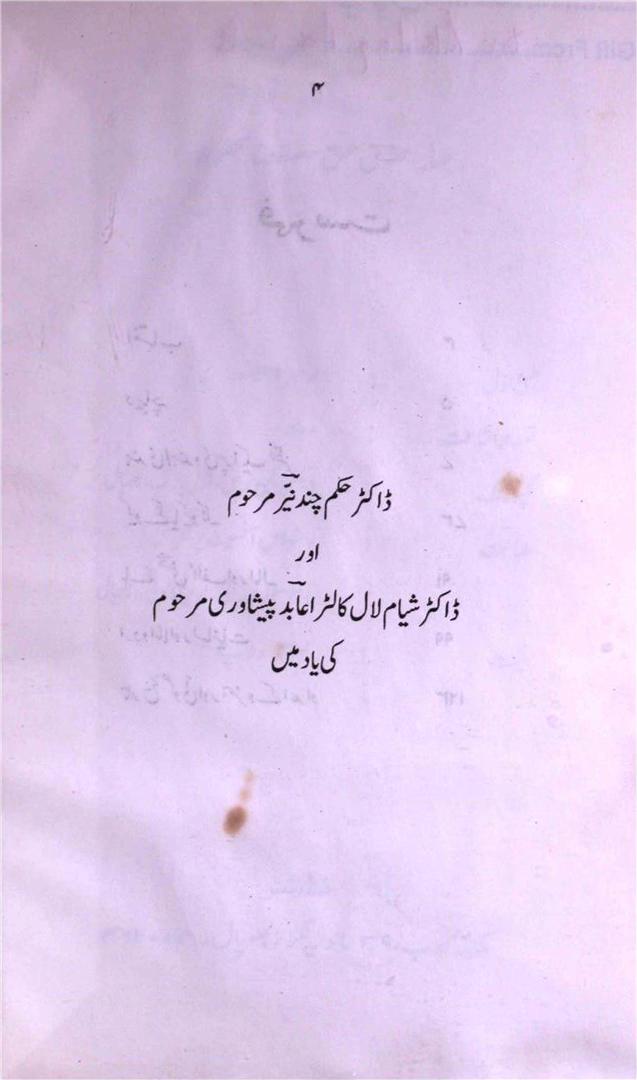 ۴
ڈاکٹر حکم چند نیّر مرحوم
اور
ڈاکٹر شیام لال کالڑا عابد پیشاوری مرحوم
کی یاد میں